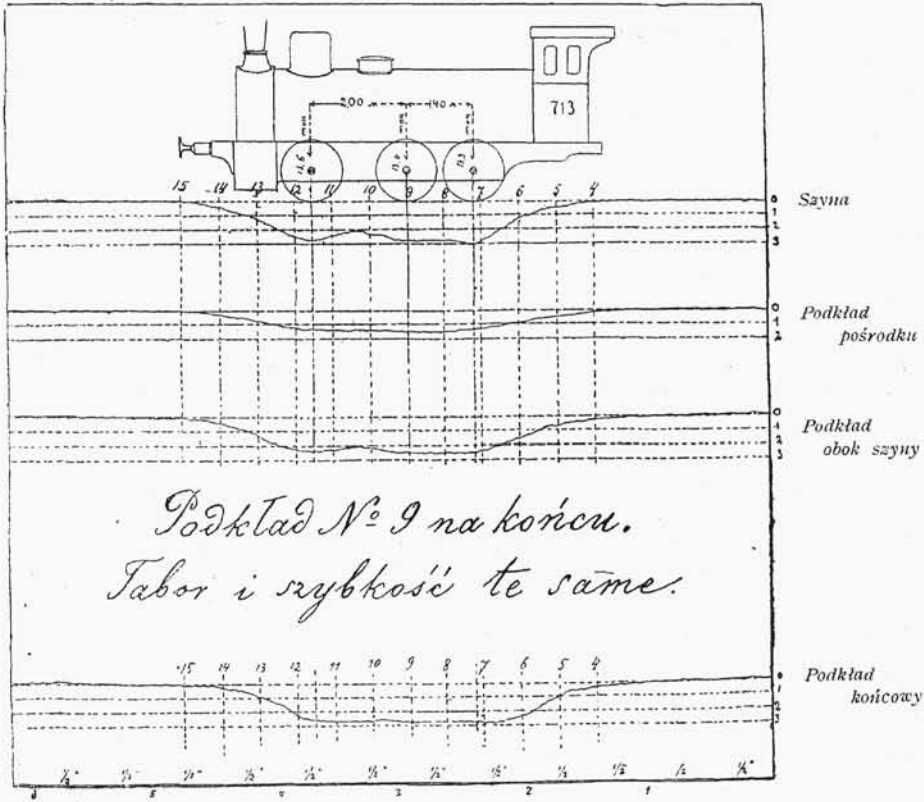 200 м 140 м
713
15 14 13 12 11 10 9 8 7 6 5 4
0
1
2
3
Szyna
0
1
2
Podkład
pośrodku
0
1
2
3
Podkład
obok szyny
Podkład Nº 9 na końcu.
Tabor i szybkość te same.
15 14 13 12 11 10 9 8 7 6 5 4
0
1
2
3
Podkład
końcowy
½" ½" ½" ½" ½" ½" ½" ½" ½ ½ ½ ½"
6 5 4 3 2 1